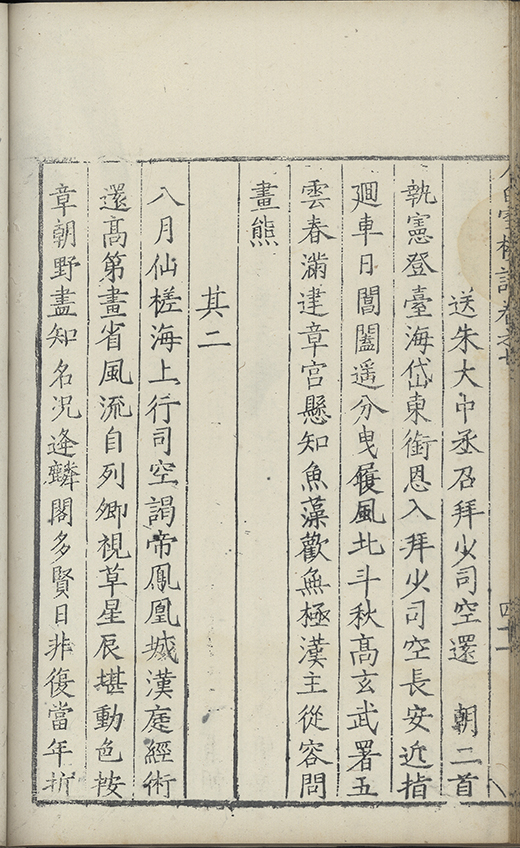 送朱大中丞召拜少司空還　朝二首
執憲登臺海岱東銜恩入拜少司空長安近指
廻車日閶闔遥分曳履風北斗秋髙玄武署五
雲春滿建章宫懸知魚藻歡無極漢主從容問
畫熊
其二
八月仙槎海上行司空謁帝鳳凰城漢庭經術
還髙第畫省風流自列卿視草星辰堪動色按
章朝野盡知名况逢麟閣多賢日非復當年折